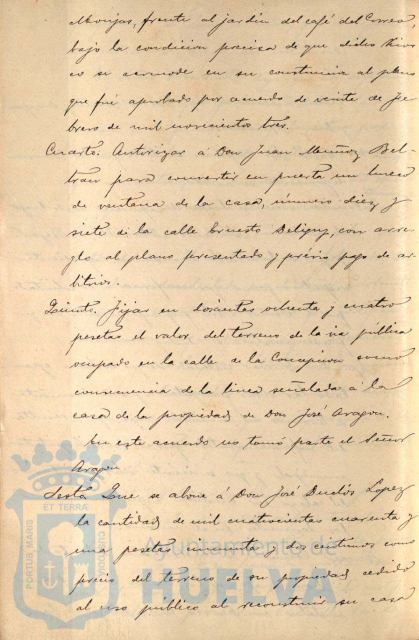 Monjas, frente al jardin del café del Correo,
bajo la condicion precisa de que dicho Kios
co se acomode en su construccion al plano
que fué aprobado por acuerdo de veinte de Fe
brero de mil novecientos tres.
Cuarto. Autorizar á Don Juan Muñoz Bel-
tran para convertir en puerta un hueco
de ventana de la casa, número diez y
siete de la calle Ernesto Deligny, con arre-
glo al plano presentado y prévio pago de ar-
bitrios.
Quinto. Fijar en doscientas ochenta y cuatro
pesetas el valor del terreno de la via publica
ocupado en la calle de la Concepcion como
consecuencia de la linea señalada á la
casa de la propiedad de Don José Aragon.
En este acuerdo no tomó parte el Señor
Aragon
Sesto. Que se abone á Don José Duclós Lopez
la cantidad de mil cuatrocientas cuarenta y
una pesetas cincuenta y dos centimos como
precio del terreno de su propiedad cedido
al uso publico al reconstruir su casa
PORTUS MARIS
ET TERRÆ
CUSTODIA
Ayuntamiento de
HUELVA